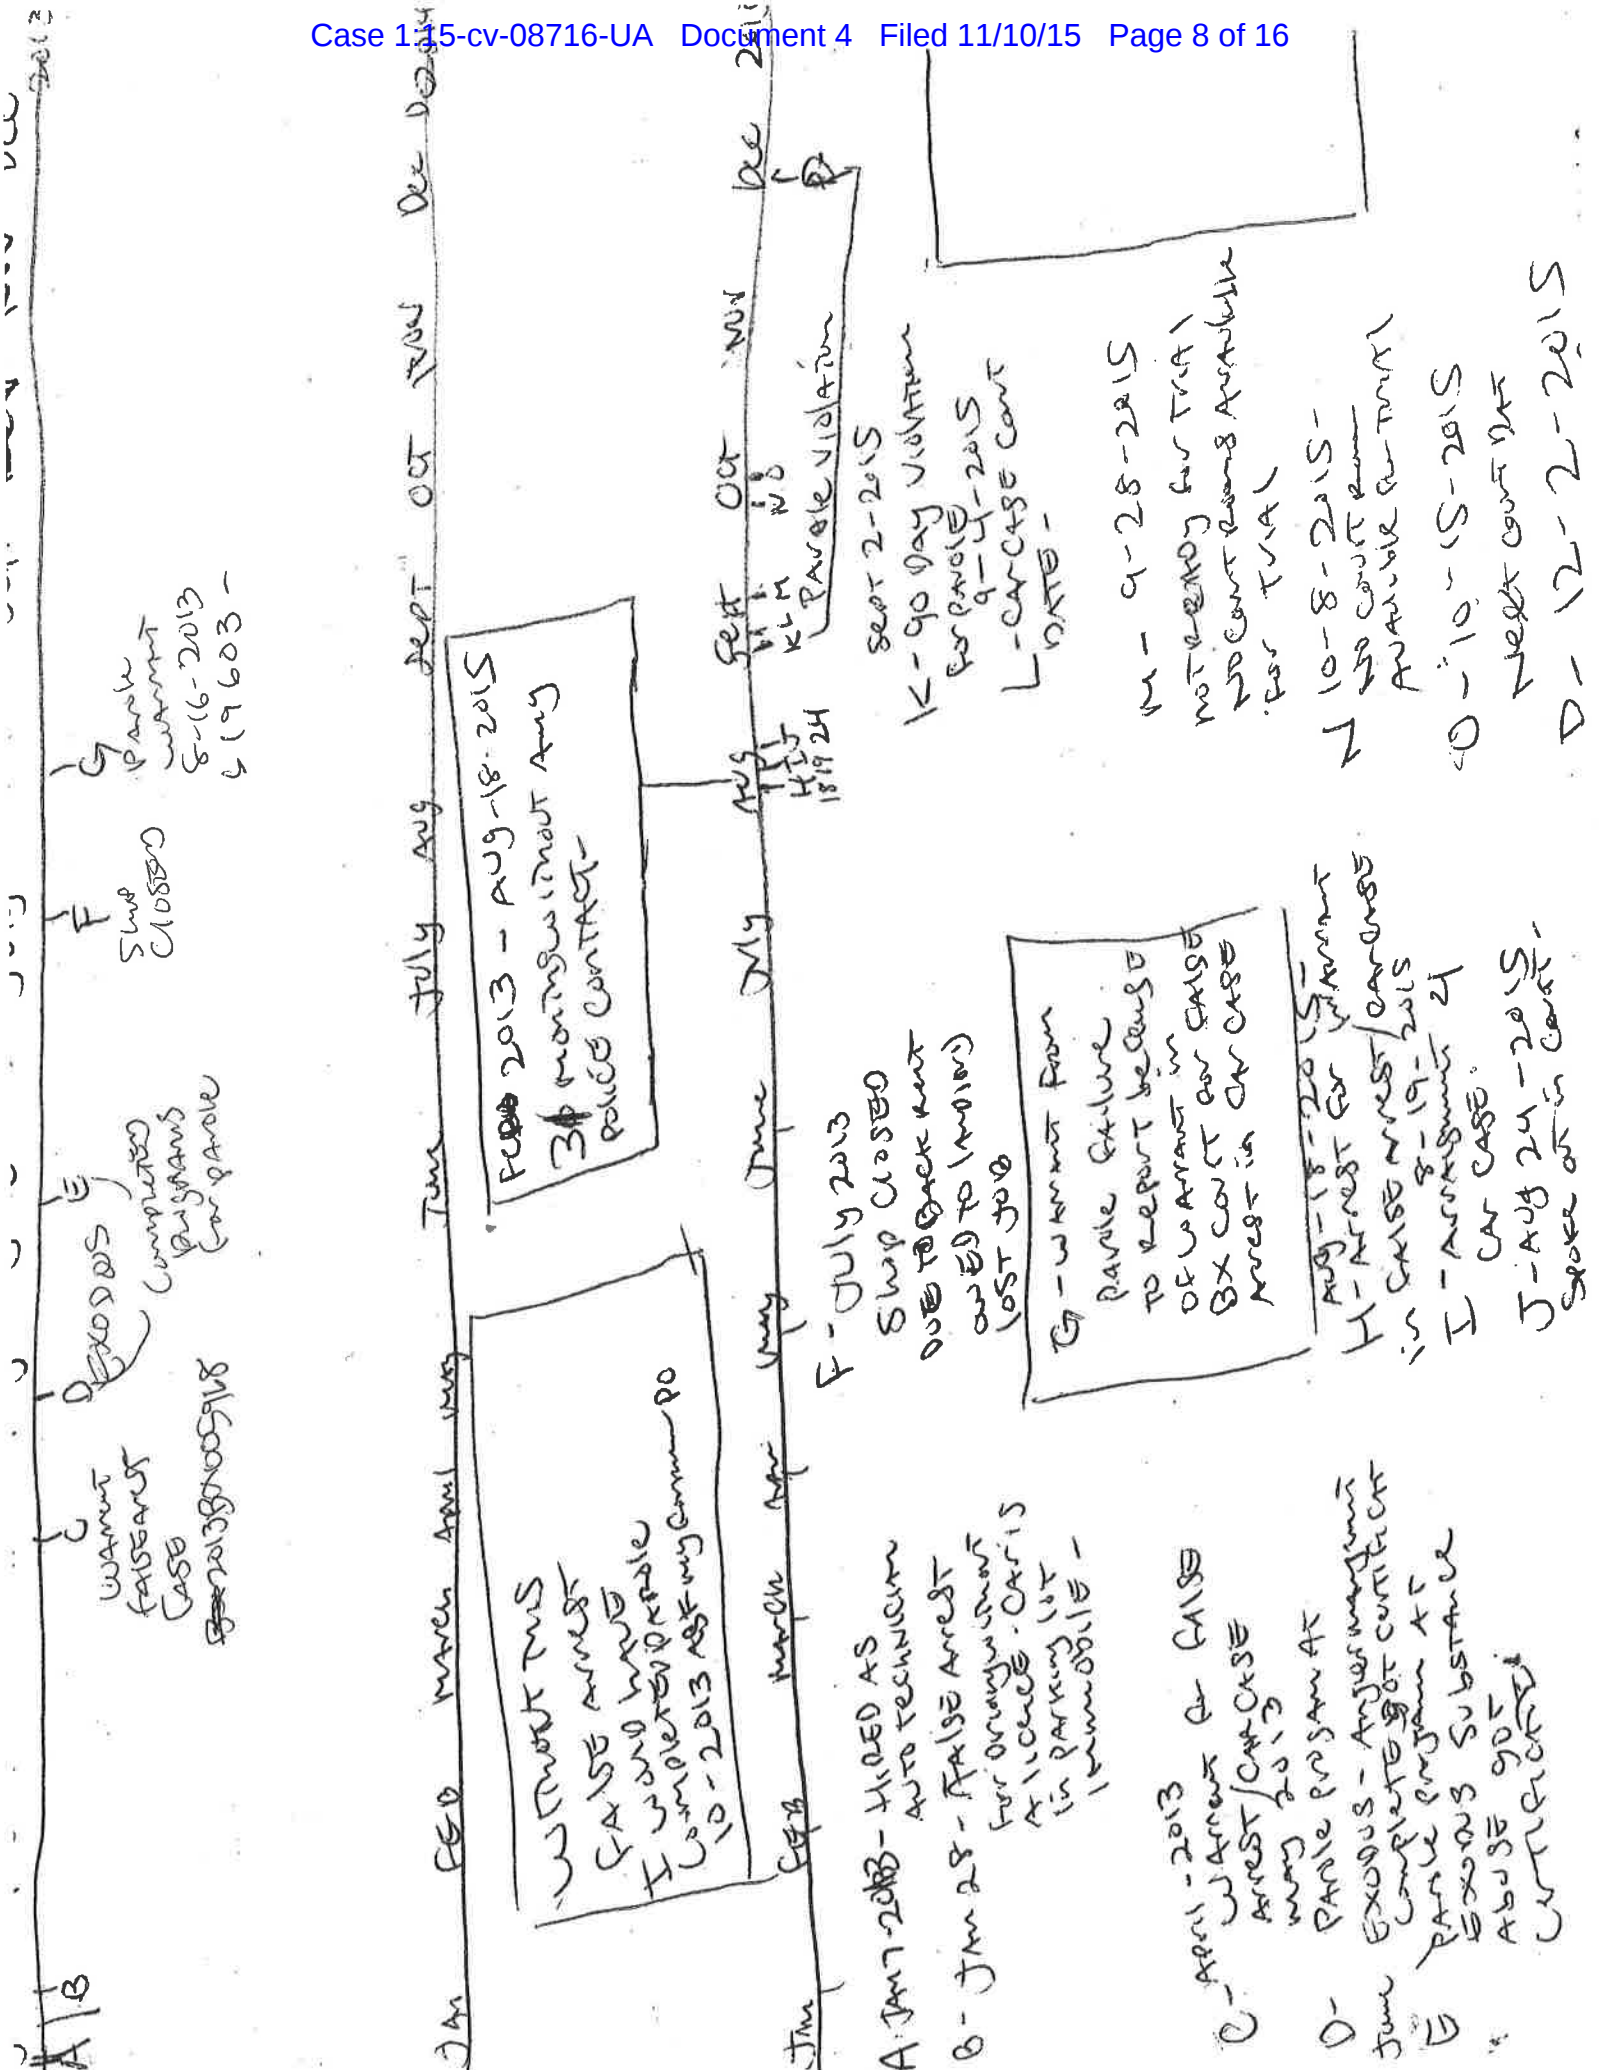 Case 1:15-cv-08716-UA Document 4 Filed 11/10/15 Page 8 of 16
2013
A B C D E F G
WARRENT
FALSE ARREST
CASE
2013BX005968
EXODOS
Completed
Programs
for PAROLE
Shop
Closed
Parole
warrant
8-16-2013
Jan FEB March April May June July Aug Sept Oct Nov Dec 2014
WITHOUT THIS
FALSE ARREST
I would have
Completed parole
10-2013 PO
2013 - AUG-18-2015
months without Any
Police CONTACT-
Jan FEB March Apr May June July Aug Sept Oct Nov Dec
H I J
18 19 24
K L M
N O
Parole Violation
A. JAN 7-2013- HIRED AS
AUTO TECHNICIAN
B- JAN 28- FALSE ARREST
for driving without
A licence. Car is
in parking lot
immobile-
C- April-2013
WARRENT for FALSE
Arrest/CAR CASE
D- May 2013
PAROLE program AT
EXODUS- Anger management
Complete got certificat
June
E
Parole program AT
EXODUS SUBSTANCE
Abuse got
Certificate
F- July 2013
Shop closed
DUE TO Back Rent
owed to landlord
lost JOB
G- warrant from
Parole failure
to report because
of warrant in
BX court for FALSE
Arrest in Car CASE
AUG-18-2015-
H- Arrest for warrant
in FALSE Arrest/CAR CASE
8-19-2015
I- Arraignment
CAR CASE.
J- Aug 24-2015
Spoke in Court-
SEPT 2-2015
K- 90 DAY violation
for PAROLE
9-4-2015
L- CAR CASE Court
DATE-
M- 9-28-2015
NOT READY for TRIAL
NO Court Rooms Available
for TRIAL
N 10-8-2015-
NO Court Room
Available for TRIAL
O- 10-15-2015
Next Court DAT
D- 12-2-2015